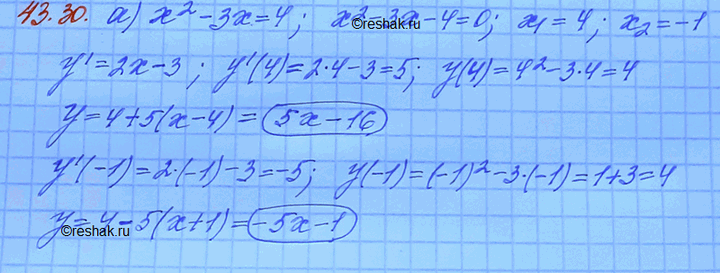 43.30. а) x² - 3x = 4; x² - 3x - 4 = 0; x₁ = 4; x₂ = -1
©reshak.ru
y' = 2x - 3; y'(4) = 2·4 - 3 = 5; y(4) = 4² - 3·4 = 4
y = 4 + 5(x - 4) = 5x - 16
y'(-1) = 2·(-1) - 3 = -5; y(-1) = (-1)² - 3·(-1) = 1 + 3 = 4
y = 4 - 5(x + 1) = -5x - 1
©reshak.ru